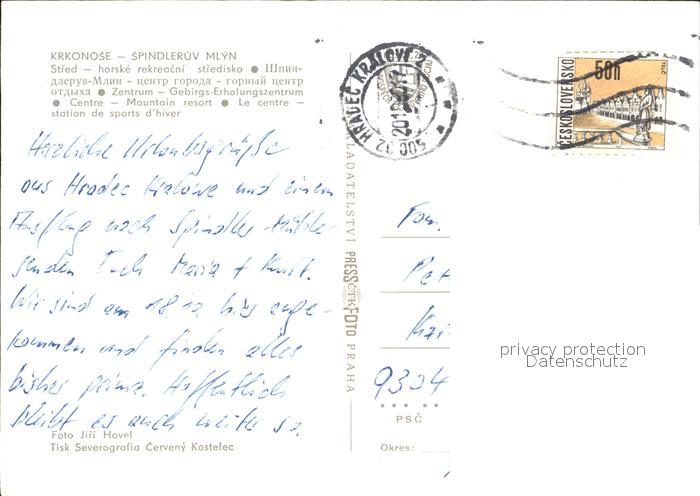 KRKONOŠE – ŠPINDLERŮV MLÝN
Střed – horské rekreační středisko ● Шпин-
длерув-Млин - центр города - горный центр
отдыха ● Zentrum – Gebirgs-Erholungszentrum
● Centre – Mountain resort ● Le centre –
station de sports d'hiver
Herzliche Urlaubsgrüße
aus Hradec Kralowe und einem
Ausflug nach Spindler-Mühle
senden Euch Maria + Kurt.
Wir sind am 18.12. hier ange-
kommen und finden alles
bisher prima. Hoffentlich
bleibt es auch weiter so.
Foto Jiří Havel
Tisk Severografia Červený Kostelec
PRESSFOTO PRAHA
HRADEC KRÁLOVÉ
500 02
ČESKOSLOVENSKO
50h
Fam.
Pet
9304
PSČ
Okres:
privacy protection
Datenschutz